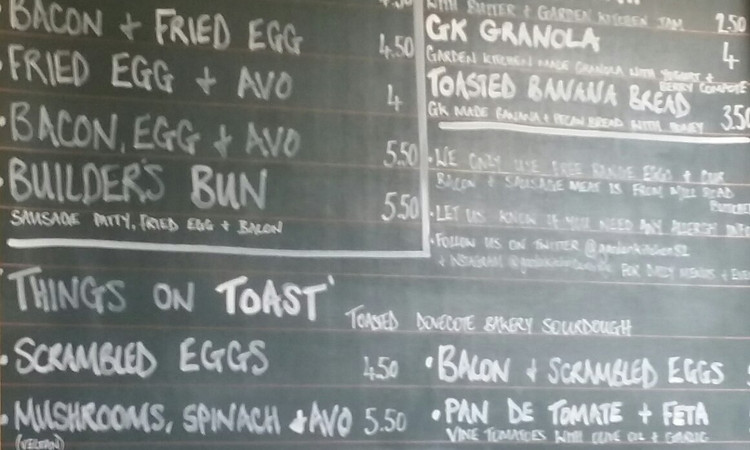 BACON + FRIED EGG 4.50
FRIED EGG + AVO 4
BACON, EGG + AVO 5.50
BUILDER'S BUN 5.50
SAUSAGE PATTY, FRIED EGG & BACON
WITH BUTTER + GARDEN KITCHEN JAM 2.50
GK GRANOLA 4
GARDEN KITCHEN MADE GRANOLA WITH YOGURT +
BERRY COMPOTE
TOASTED BANANA BREAD 3.50
GK MADE BANANA + PECAN BREAD WITH HONEY
• WE ONLY USE FREE RANGE EGGS + OUR
BACON + SAUSAGE MEAT IS FROM MILL ROAD
• LET US KNOW IF YOU NEED ANY ALLERGY INFO
• FOLLOW US ON TWITTER
+ INSTAGRAM FOR DAILY MENUS +
'THINGS ON TOAST' TOASTED DOVECOTE BAKERY SOURDOUGH
• SCRAMBLED EGGS 4.50
• MUSHROOMS, SPINACH + AVO 5.50
(VEGAN)
• BACON + SCRAMBLED EGGS
• PAN DE TOMATE + FETA
VINE TOMATOES WITH OLIVE OIL + GARLIC